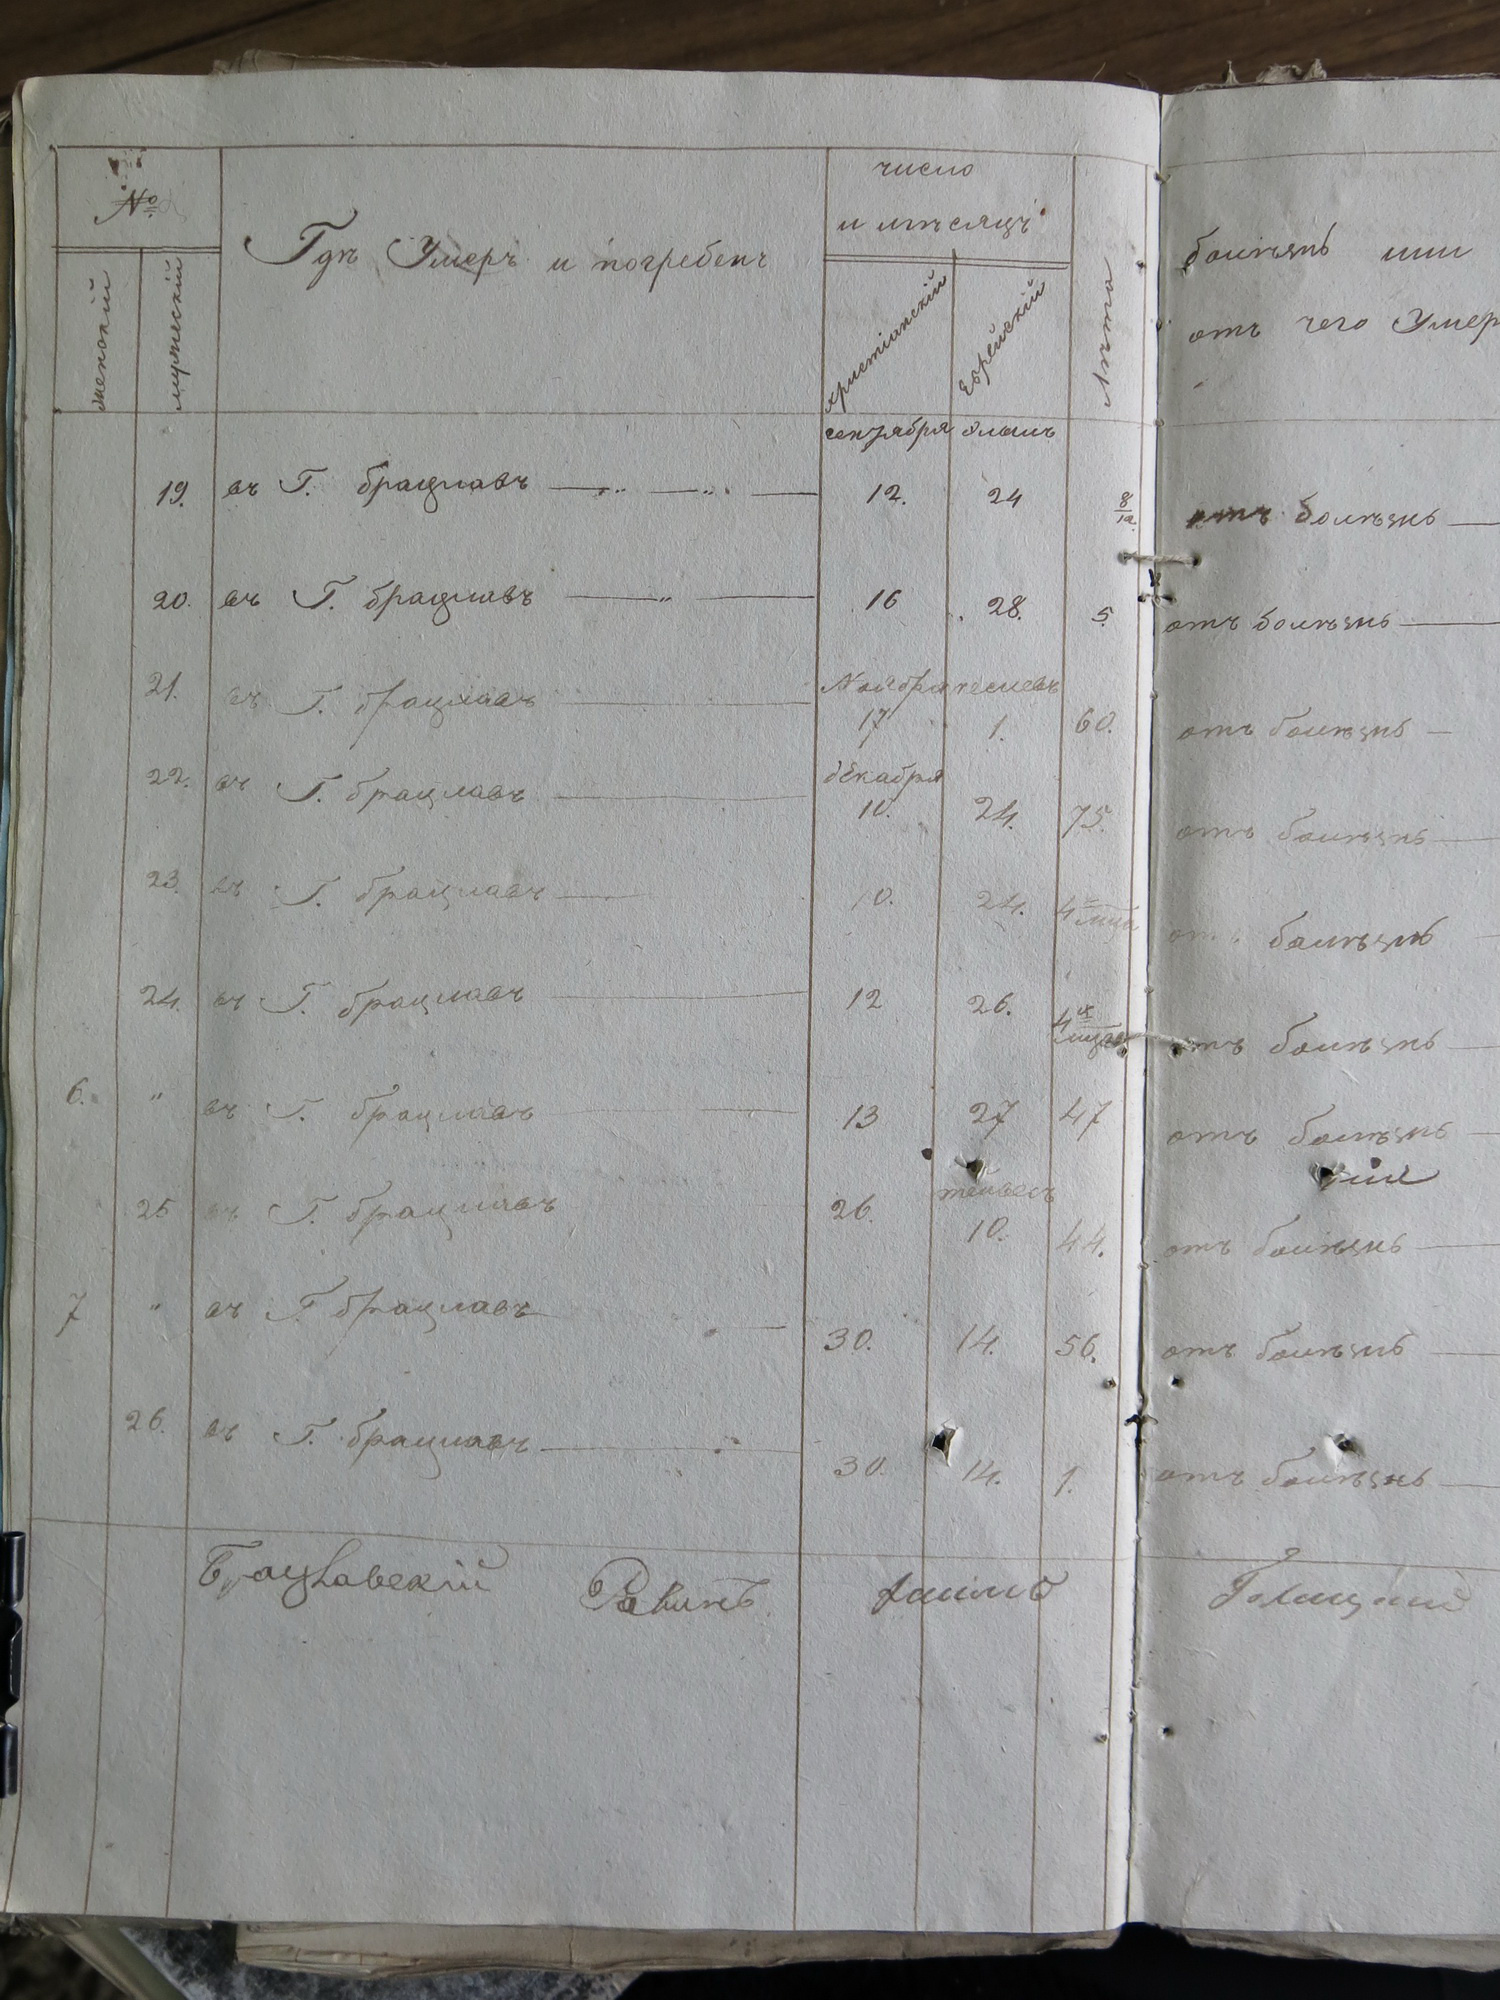 №
женскій
мужескій
Гдѣ Умеръ и погребенъ
число
и мѣсяцъ
христіанскій
Еврейскій
Лѣта
болѣзнь или
отъ чего Умер
сентября элылъ
19. въ Г. брацлавѣ 12. 24 8/12. отъ болѣзнь
20. въ Г. брацлавѣ 16 28. 5. отъ болѣзнь
Ноября кеслевъ
21. въ Г. брацлавѣ 17 1. 60. отъ болѣзнь
декабря
22. въ Г. брацлавѣ 10. 24. 75. отъ болѣзнь
23. въ Г. брацлавѣ 10. 24. 4 мца отъ болѣзнь
24. въ Г. брацлавѣ 12 26. 4 мца отъ болѣзнь
6. " въ Г. брацлавѣ 13 27 47 отъ болѣзнь
тейвесъ
25 въ Г. брацлавѣ 26. 10. 44. отъ болѣзнь
7 " въ Г. брацлавѣ 30. 14. 56. отъ болѣзнь
26. въ Г. брацлавѣ 30. 14. 1. отъ болѣзнь
Брацлавскій Равинъ